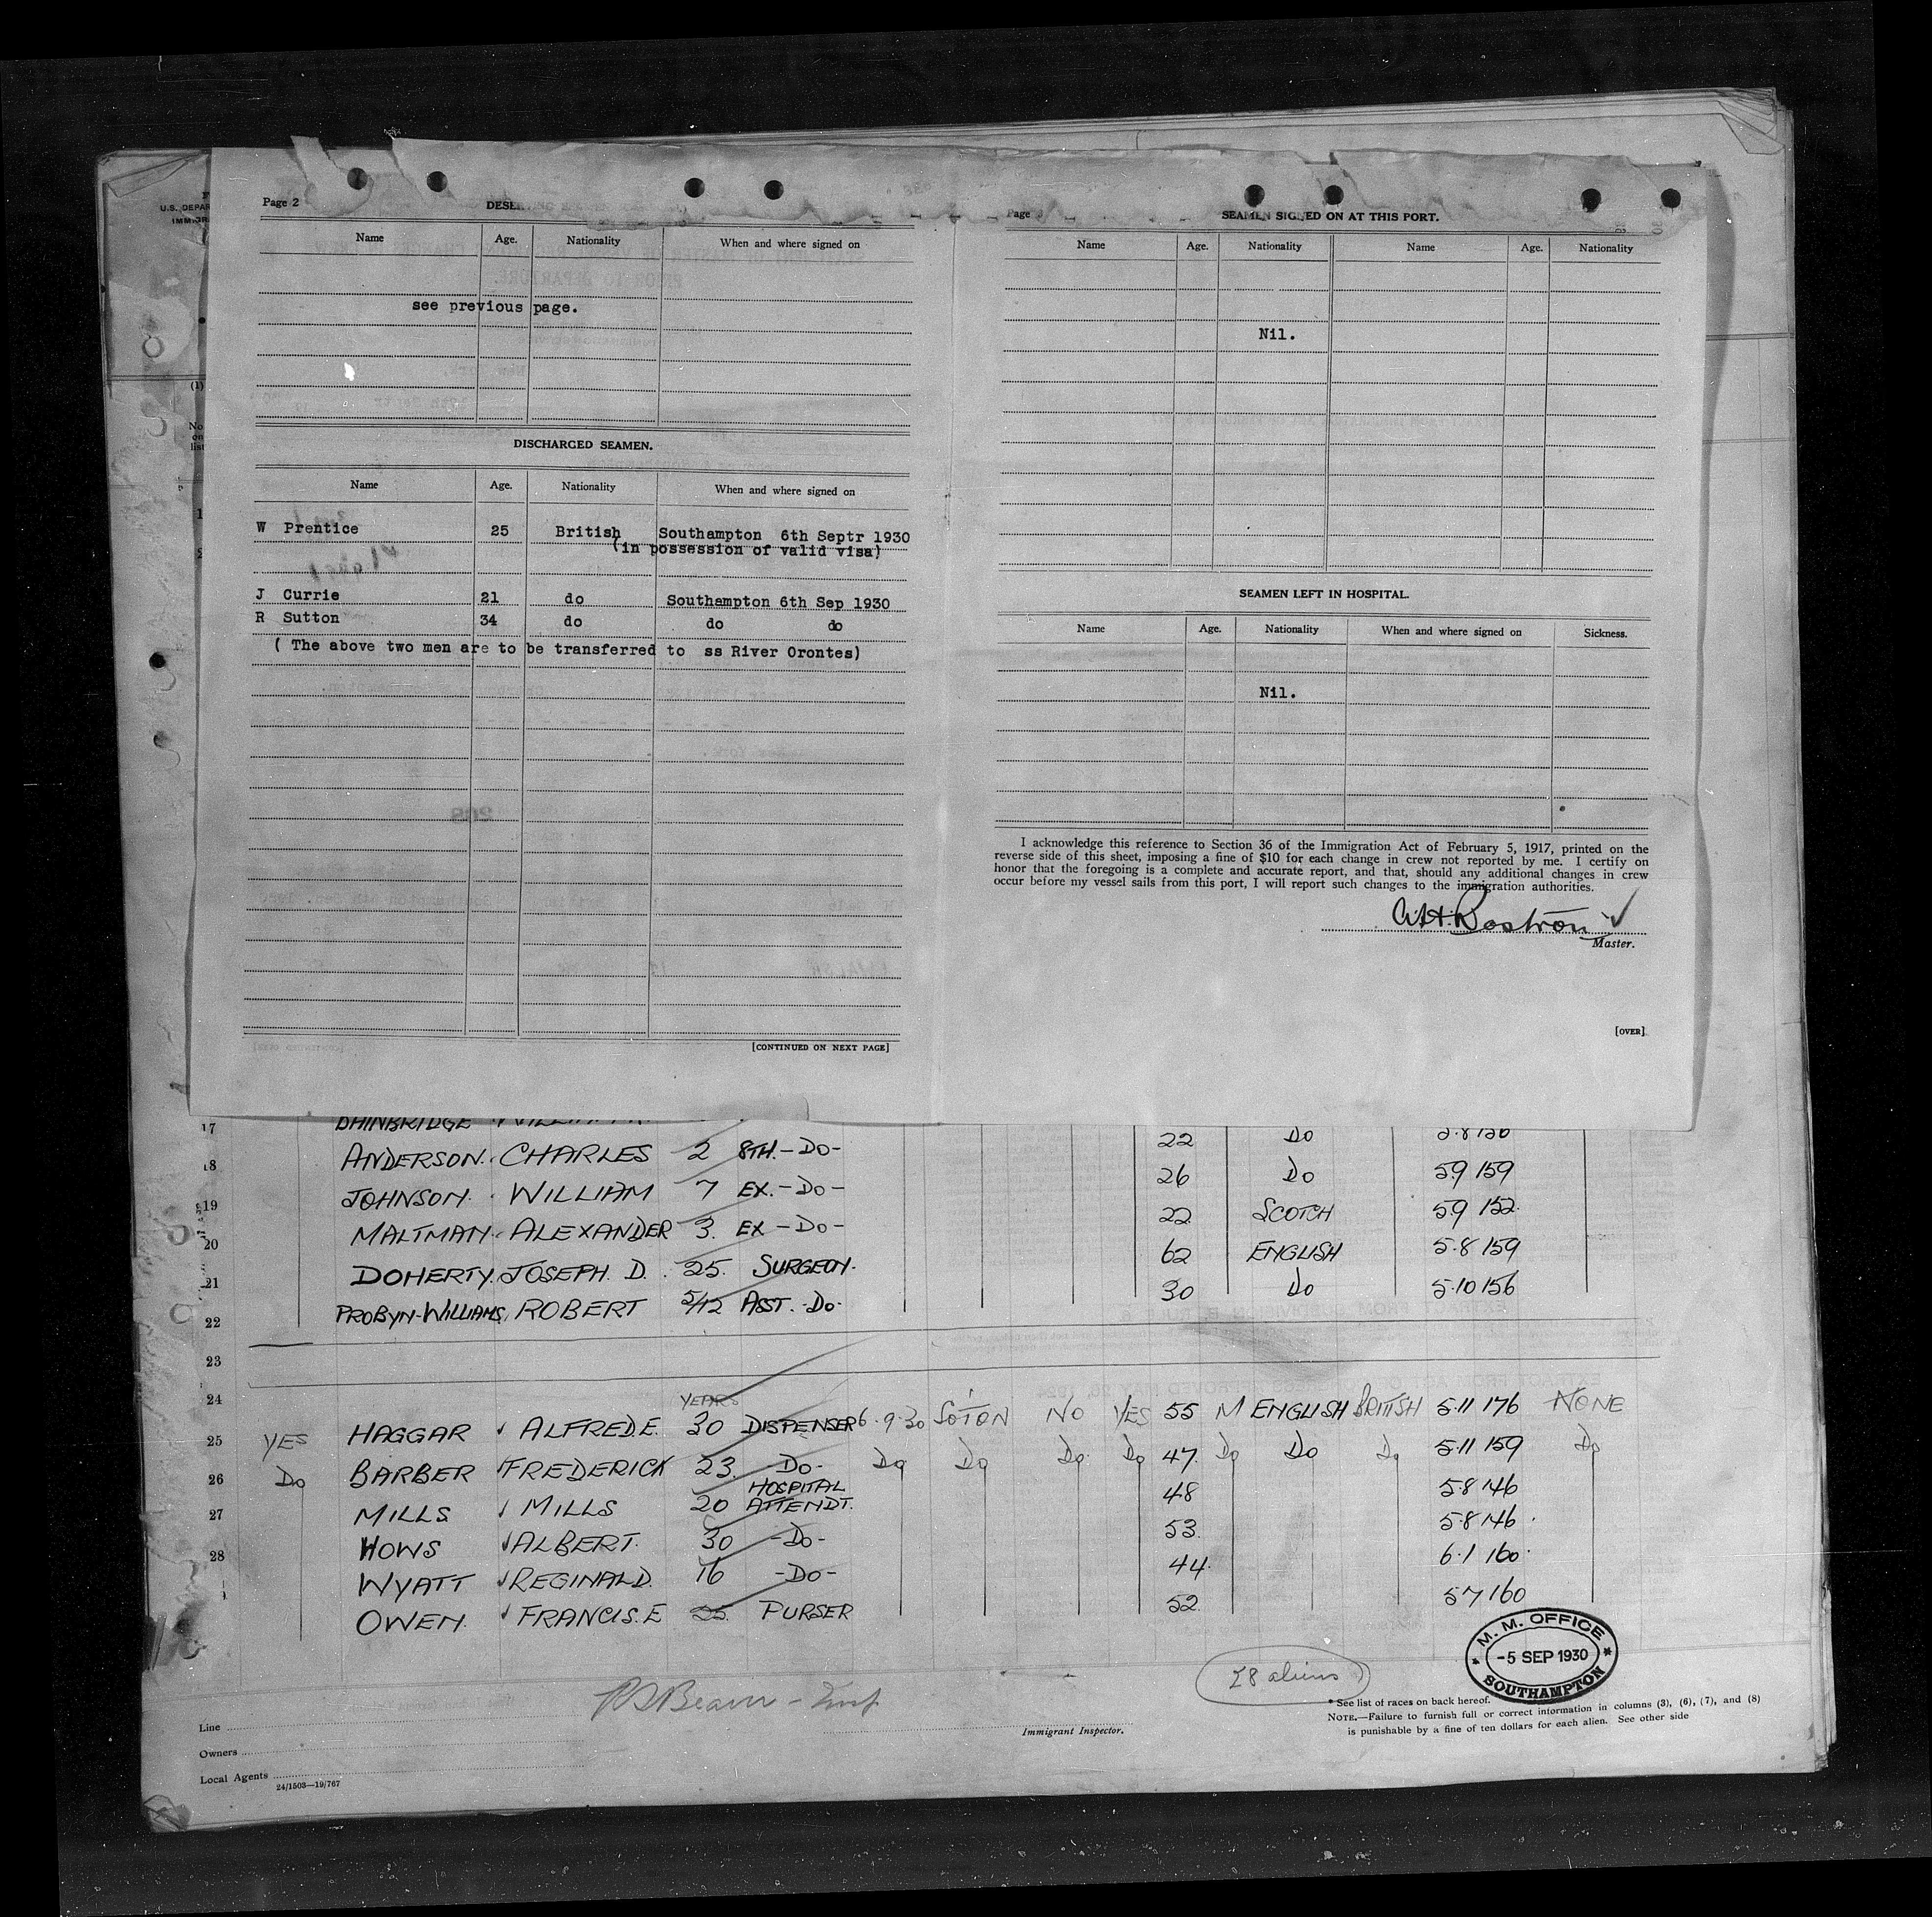 U.S. DEPAR
IMMIGR
Page 2
DESE
Name Age. Nationality When and where signed on
see previous page.
DISCHARGED SEAMEN.
Name Age. Nationality When and where signed on
W Prentice 25 British Southampton 6th Septr 1930
(in possession of valid visa)
J Currie 21 do Southampton 6th Sep 1930
R Sutton 34 do do do
( The above two men are to be transferred to ss River Orontes)
[CONTINUED ON NEXT PAGE]
Page
SEAMEN SIGNED ON AT THIS PORT.
Name Age. Nationality Name Age. Nationality
Nil.
SEAMEN LEFT IN HOSPITAL.
Name Age. Nationality When and where signed on Sickness.
Nil.
I acknowledge this reference to Section 36 of the Immigration Act of February 5, 1917, printed on the
reverse side of this sheet, imposing a fine of $10 for each change in crew not reported by me. I certify on
honor that the foregoing is a complete and accurate report, and that, should any additional changes in crew
occur before my vessel sails from this port, I will report such changes to the immigration authorities.
A.H. Rostron
Master.
[OVER]
17 BAINBRIDGE 22 Do 5.8 150
18 ANDERSON. CHARLES 2 8TH.-DO- 26 Do 5.9 159
19 JOHNSON. WILLIAM 7 EX.-DO- 22 SCOTCH 5.9 152
20 MALTMAN. ALEXANDER 3. EX-DO- 62 ENGLISH 5.8 159
21 DOHERTY. JOSEPH D. 25. SURGEON. 30 Do 5.10 156
22 PROBYN-WILLIAMS, ROBERT 5/12 ASST.-DO-
23
24 YEARS
YES HAGGAR ALFRED.E. 30 DISPENSER 6.9.30 SOTON NO YES 55 M ENGLISH BRITISH 5.11 176 NONE
25 Do BARBER FREDERICK 23. -DO- Do Do Do Do 47. Do Do Do 5.11 159 Do
26 MILLS MILLS 20 HOSPITAL ATTENDT. 48 5.8 146
27 HOWS ALBERT. 30 -DO- 53. 5.8 146
28 WYATT REGINALD. 16 -DO- 44. 6.1 160
OWEN. FRANCIS.E 25. PURSER 52. 5.7 160
28 aliens
M. M. OFFICE
-5 SEP 1930
SOUTHAMPTON
Line
Owners
Local Agents
24/1503—19/767
Immigrant Inspector.
* See list of races on back hereof.
NOTE.—Failure to furnish full or correct information in columns (3), (6), (7), and (8)
is punishable by a fine of ten dollars for each alien. See other side